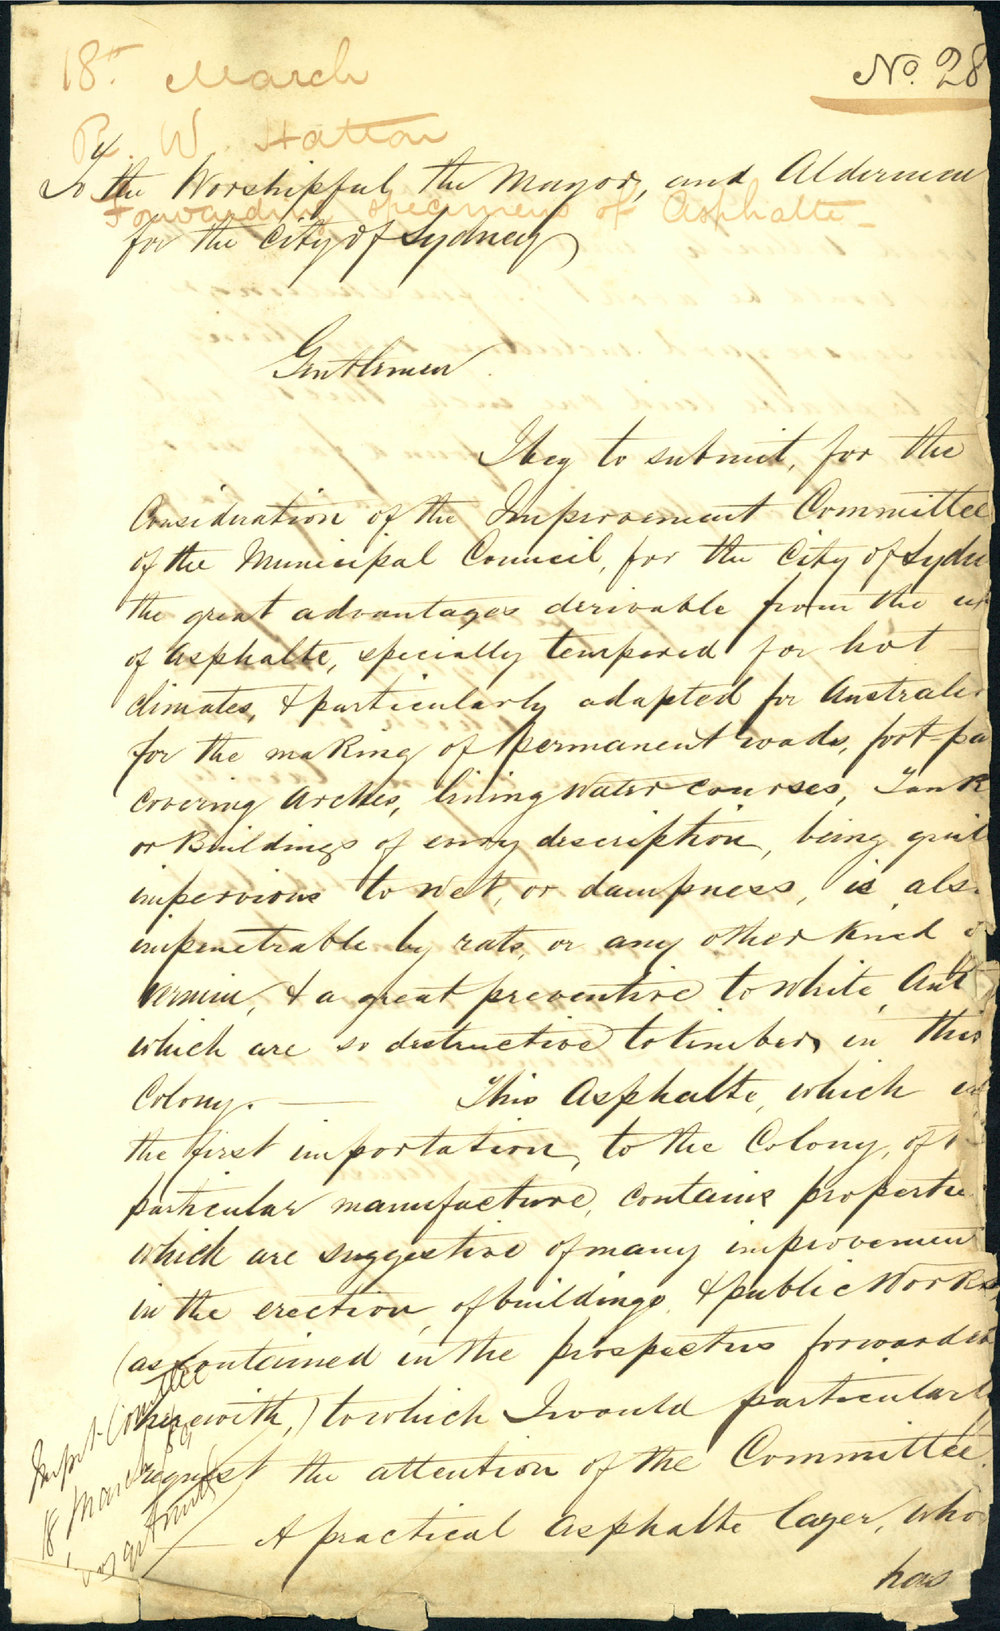 No. 28
18th March
W. Hatton
To the Worshipful, the Mayor, and Aldermen
Forwarding specimens of Asphalte
for the City of Sydney
Gentlemen
I beg to submit, for the
Consideration of the Improvement Committee
of the Municipal Council, for the City of Sydn
the great advantages derivable from the us
of Asphalte, specially tempered for hot
climates, & particularly adapted for Australi
for the making of permanent roads, foot-pa
covering Arches, lining Water courses, Tank
or Buildings of every description, being quit
impervious to wet, or dampness, is als
impenetrable by rats, or any other kind o
vermin, & a great preventive to White Ant
which are so destructive to timber, in this
Colony. — This Asphalte, which is
the first importation, to the Colony, of
particular manufacture, contains propertie
which are suggestive of many improvemen
in the erection, of buildings, & public Works
(as contained in the prospectus forwarded
herewith,) to which I would particularly
request the attention of the Committee.
— A practical Asphalte layer, who
has
Impt Committee
18 March